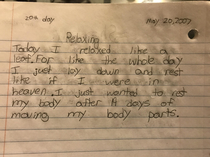 20th day May 20, 2007
Relaxing
Today I relaxed like a
leaf. For like the whole day
I just lay down and rest
like if I were in
heaven. I just wanted to rest
my body after 19 days of
moving my body parts.